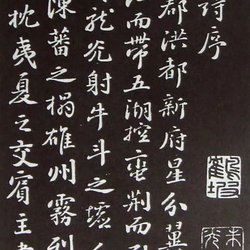 詩序
郡洪都新府星分翼
江而帶五湖控蠻荊而引
龍光射牛斗之墟人
陳蕃之榻雄州霧列
枕夷夏之交賓主盡